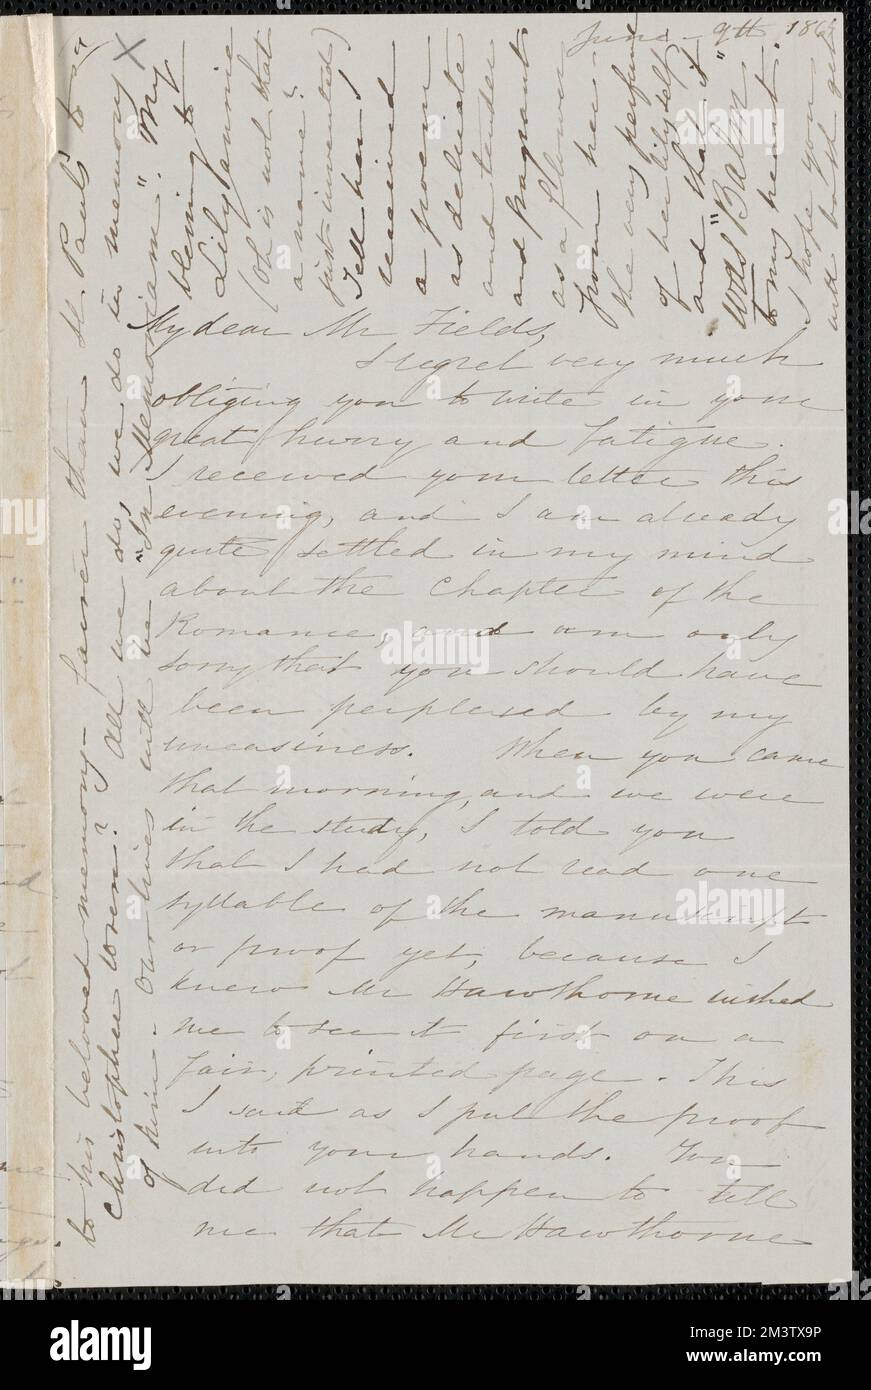 June 9th 186
My dear Mr Fields,
I regret very much
obliging you to write in your
great hurry and fatigue.
I received your letter this
evening, and I am already
quite settled in my mind
about the chapter of the
Romance, and am only
sorry that you should have
been perplexed by my
uneasiness. When you came
that morning, and we were
in the study, I told you
that I had not read one
syllable of the manuscript
or proof yet, because I
knew Mr Hawthorne wished
me to see it first on a
fair, printed page. This
I said as I put the proof
into your hands. You
did not happen to tell
me that Mr Hawthorne
to his beloved memory - fairer than St. Paul's to
Christopher Wren? All we do, we do in memory
of him - Our lives will be "In Memoriam." My
blessing to
Lily Annie
(Oh is not that
a name?
just invented)
Tell her I
received
a poem
as delicate
and tender
and fragrant
as a flower
from her -
the very perfume
of her lily self
and that it
was "Balm"
to my heart.
I hope you
will both get
X
alamy
Image ID: 2M3TX9P
www.alamy.com